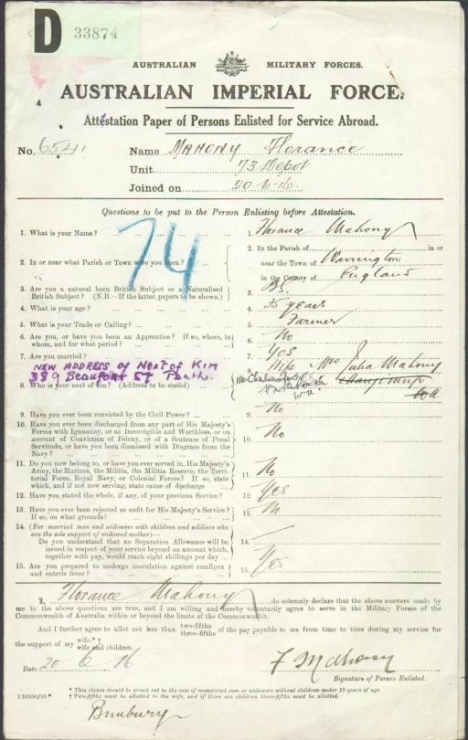 D 33874
AUSTRALIAN MILITARY FORCES.
AUSTRALIAN IMPERIAL FORCE.
Attestation Paper of Persons Enlisted for Service Abroad.
No. 6541 Name MAHONY Florance
Unit 73 Depot
Joined on 20-6-16
Questions to be put to the Person Enlisting before Attestation.
74
1. What is your Name? 1. Florance Mahony
2. In or near what Parish or Town were you born? 2. In the Parish of in or
near the Town of Warrington
in the County of England
3. Are you a natural born British Subject or a Naturalised
British Subject? (N.B.—If the latter, papers to be shown.) 3.
4. What is your age? 4. 35 years
5. What is your Trade or Calling? 5. Farmer
6. Are you, or have you been an Apprentice? If so, where, to
whom, and for what period? 6. No
7. Are you married? 7. Yes
NEW ADDRESS OF NEXT OF KIN
389 Beaufort ST Perth.
8. Who is your next of kin? (Address to be stated) 8. Wife Mrs Julia Mahony
9. Have you ever been convicted by the Civil Power? 9. No
10. Have you ever been discharged from any part of His Majesty's
Forces with Ignominy, or as Incorrigible and Worthless, or on
account of Conviction of Felony, or of a Sentence of Penal
Servitude, or have you been Dismissed with Disgrace from the
Navy? 10. No
11. Do you now belong to, or have you ever served in, His Majesty's
Army, the Marines, the Militia, the Militia Reserve, the Terri-
torial Force, Royal Navy, or Colonial Forces? If so, state
which, and if not now serving, state cause of discharge 11. No
12. Have you stated the whole, if any, of your previous Service? 12. Yes
13. Have you ever been rejected as unfit for His Majesty's Service?
If so, on what grounds? 13. No
14. (For married men and widowers with children and soldiers who
are the sole support of widowed mother)—
Do you understand that no Separation Allowance will be
issued in respect of your service beyond an amount which,
together with pay, would reach eight shillings per day 14. —
15. Are you prepared to undergo inoculation against smallpox
and enteric fever? 15. Yes
I, Florance Mahony do solemnly declare that the above answers made by
me to the above questions are true, and I am willing and hereby voluntarily agree to serve in the Military Forces of the
Commonwealth of Australia within or beyond the limits of the Commonwealth.
And I further agree to allot not less than two-fifths three-fifths of the pay payable to me from time to time during my service for
the support of my wife.* † wife and children.
Date 20 6 16 F Mahony
Signature of Person Enlisted.
* This clause should be struck out in the case of unmarried men or widowers without children under 18 years of age.
† Two-fifths must be allotted to the wife, and if there are children three-fifths must be allotted.
Bunbury